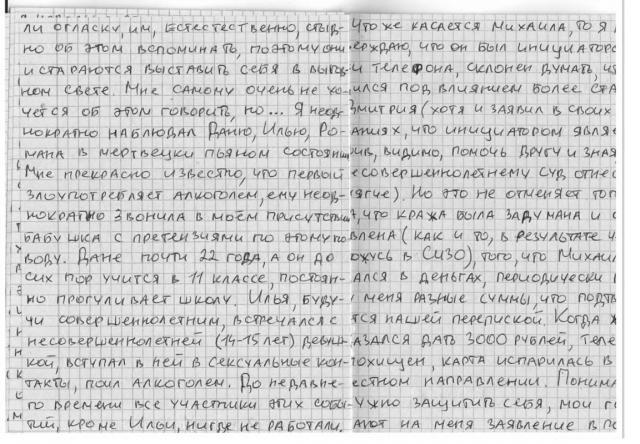 ли огласку, им, естестественно, стыд-
но об этом вспоминать, поэтому они
и стараются выставить себя в выгод-
ном свете. Мне самому очень не хо-
чется об этом говорить, но... Я неод-
нократно наблюдал Даню, Илью, Ро-
мана в мертвецки пьяном состоянии
Мне прекрасно известно, что первый
злоупотребляет алкоголем, ему неод-
нократно звонила в моём присутствии
бабушка с претензиями по этому по-
воду. Дане почти 22 года, а он до
сих пор учится в 11 классе, постоян-
но прогуливает школу. Илья, буду-
чи совершеннолетним, встречался с
несовершеннолетней (14-15 лет) девуш-
кой, вступал в ней в сексуальные кон-
такты, поил алкоголем. До недавне-
го времени все участники этих собы-
тий, кроме Ильи, нигде не работали.
Что же касается Михаила, то я
ерждаю, что он был инициаторо
и телефона, склонен думать, чт
ился под влиянием более ста
Дмитрия (хотя и заявил в своих
аниях, что инициатором являе
ив, видимо, помочь другу и зная
есовершеннолетнему суд отнес
ягче). Но это не отменяет тог
, что кража была задумана и с
влена (как и то, в результате ч
ожусь в СИЗО), того, что Михаи
ался в деньгах, периодически
меня разные суммы, что подтв
тся нашей перепиской. Когда ж
азался дать 3000 рублей, теле
охищен, карта испарилась в
естном направлении. Понима
ужно защитить себя, мои г
ают на меня заявление в по